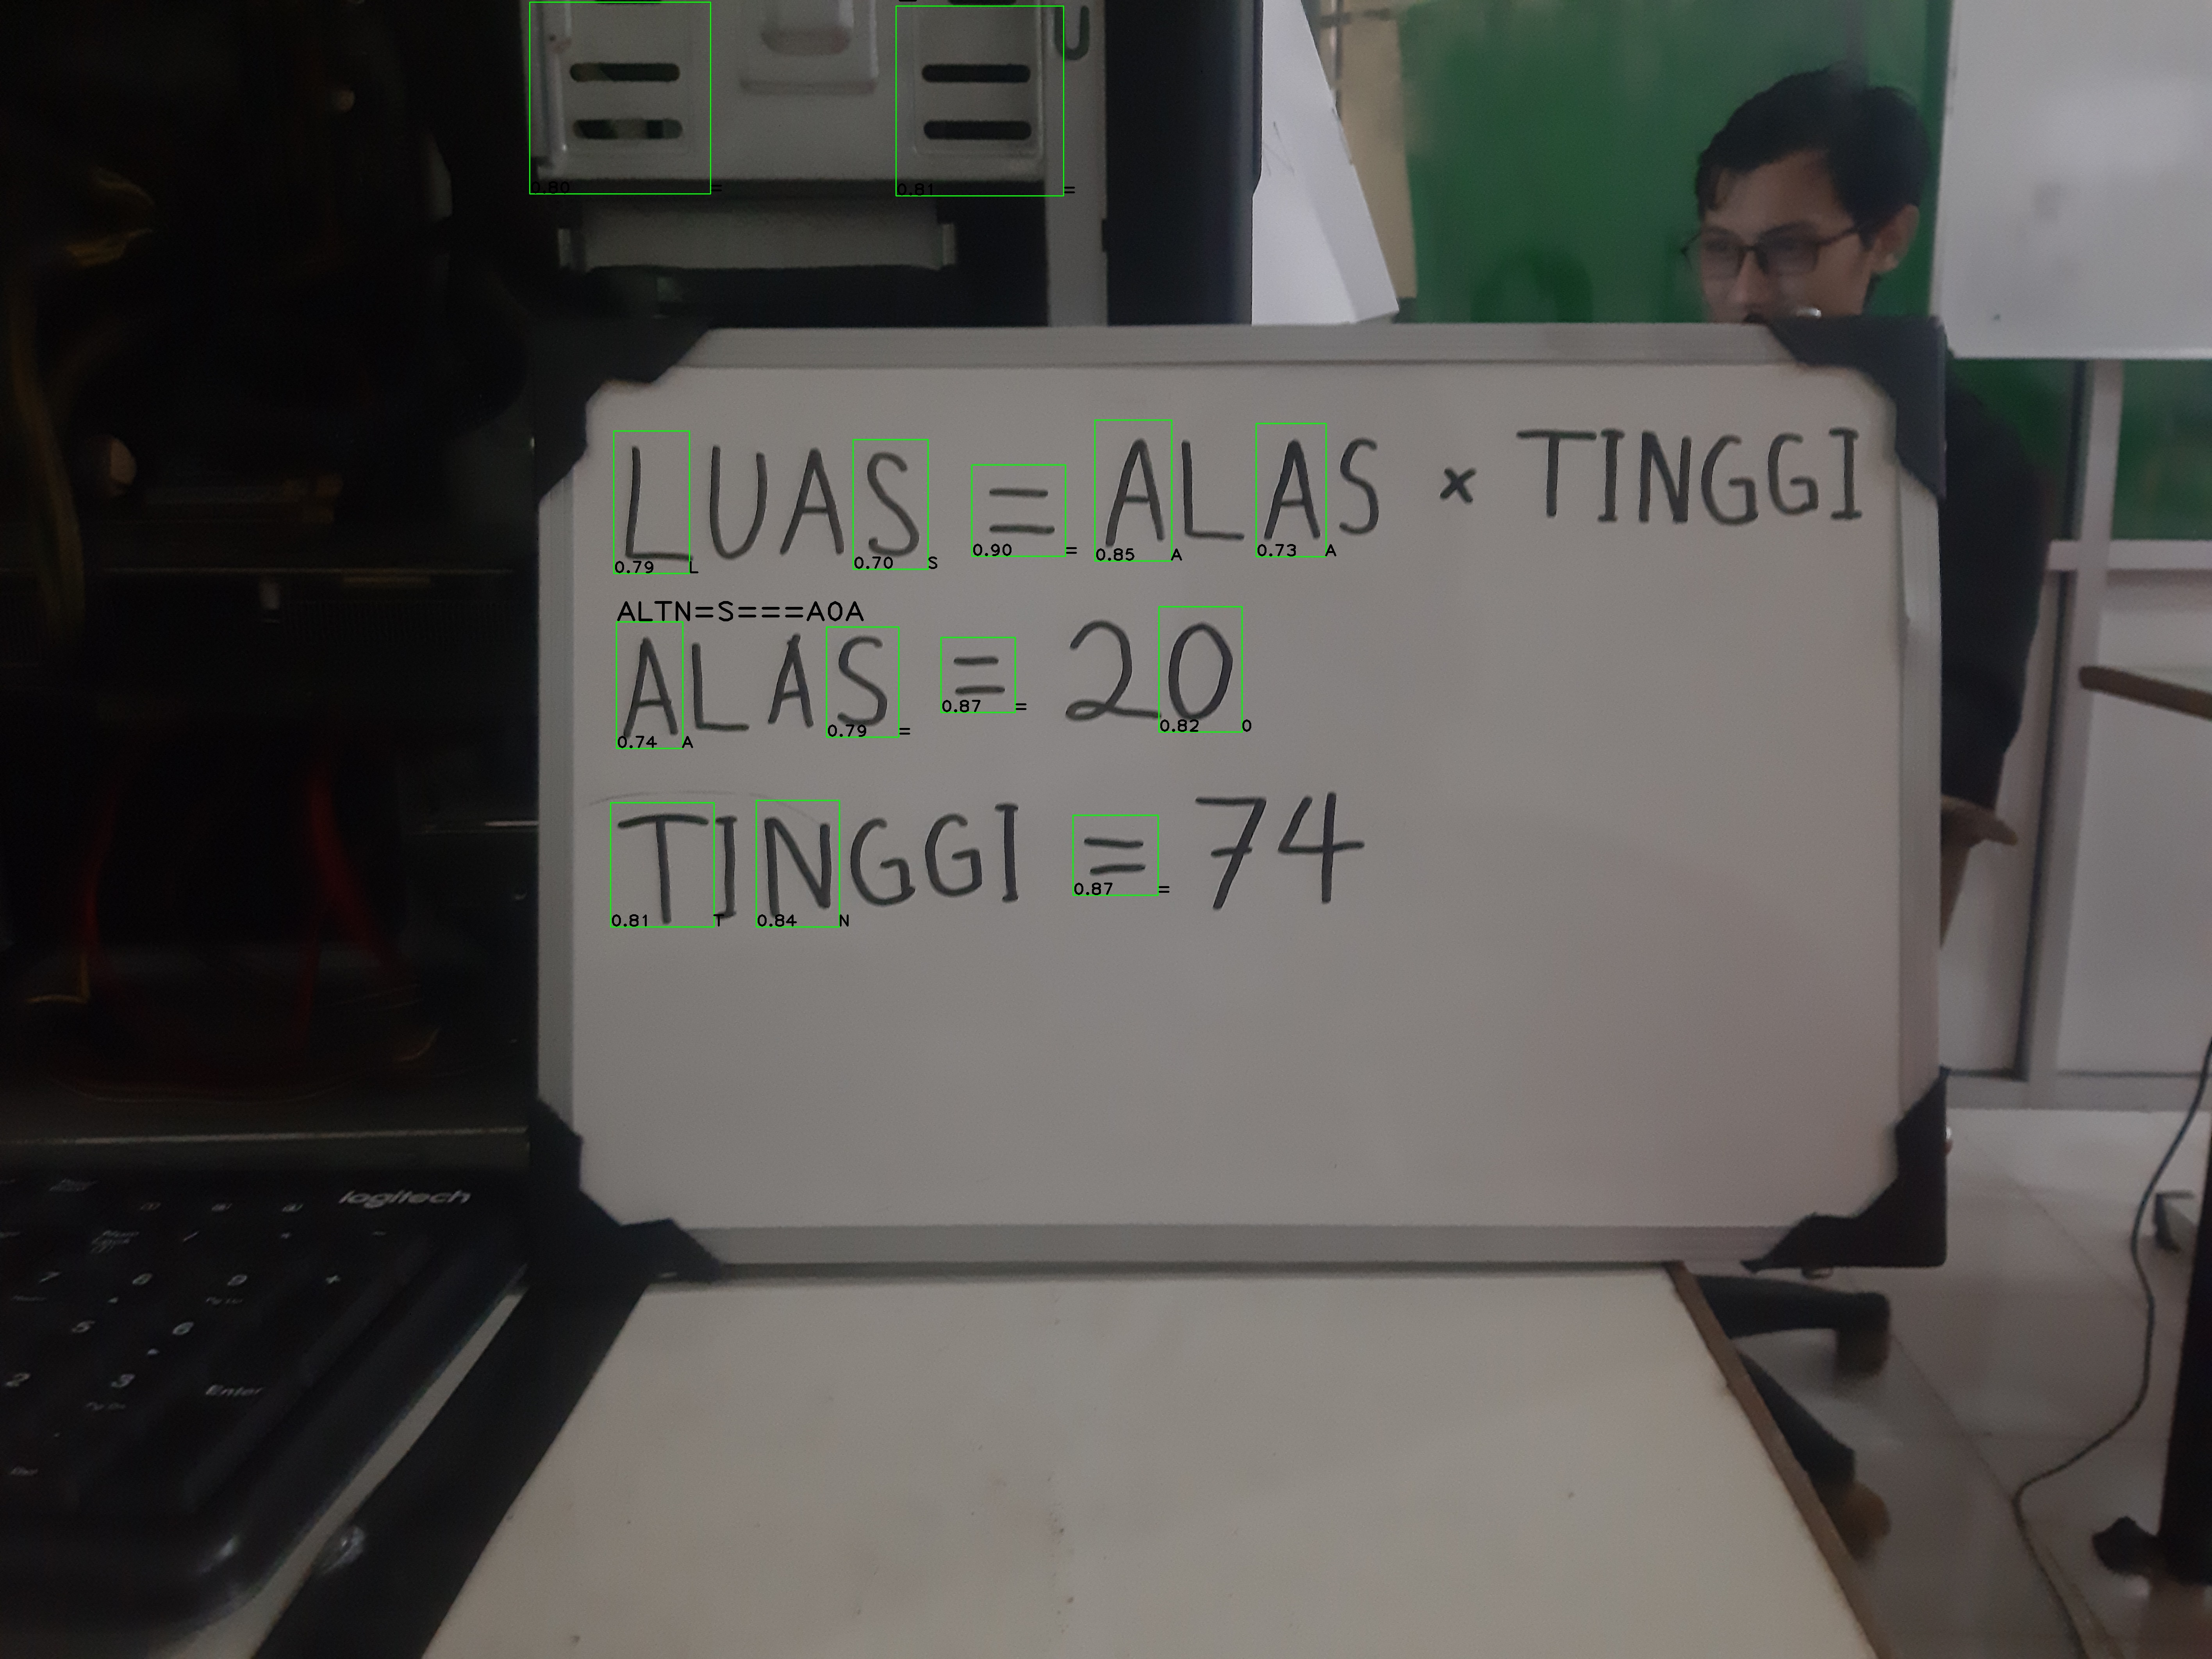 0.80 =
0.81 =
LUAS = ALAS × TINGGI
0.79 L 0.70 S 0.90 = 0.85 A 0.73 A
ALTN=S===A0A
ALAS = 20
0.74 A 0.79 = 0.87 = 0.82 0
TINGGI = 74
0.81 T 0.84 N 0.87 =
logitech
7 8 9 +
5 6
2 3 Enter